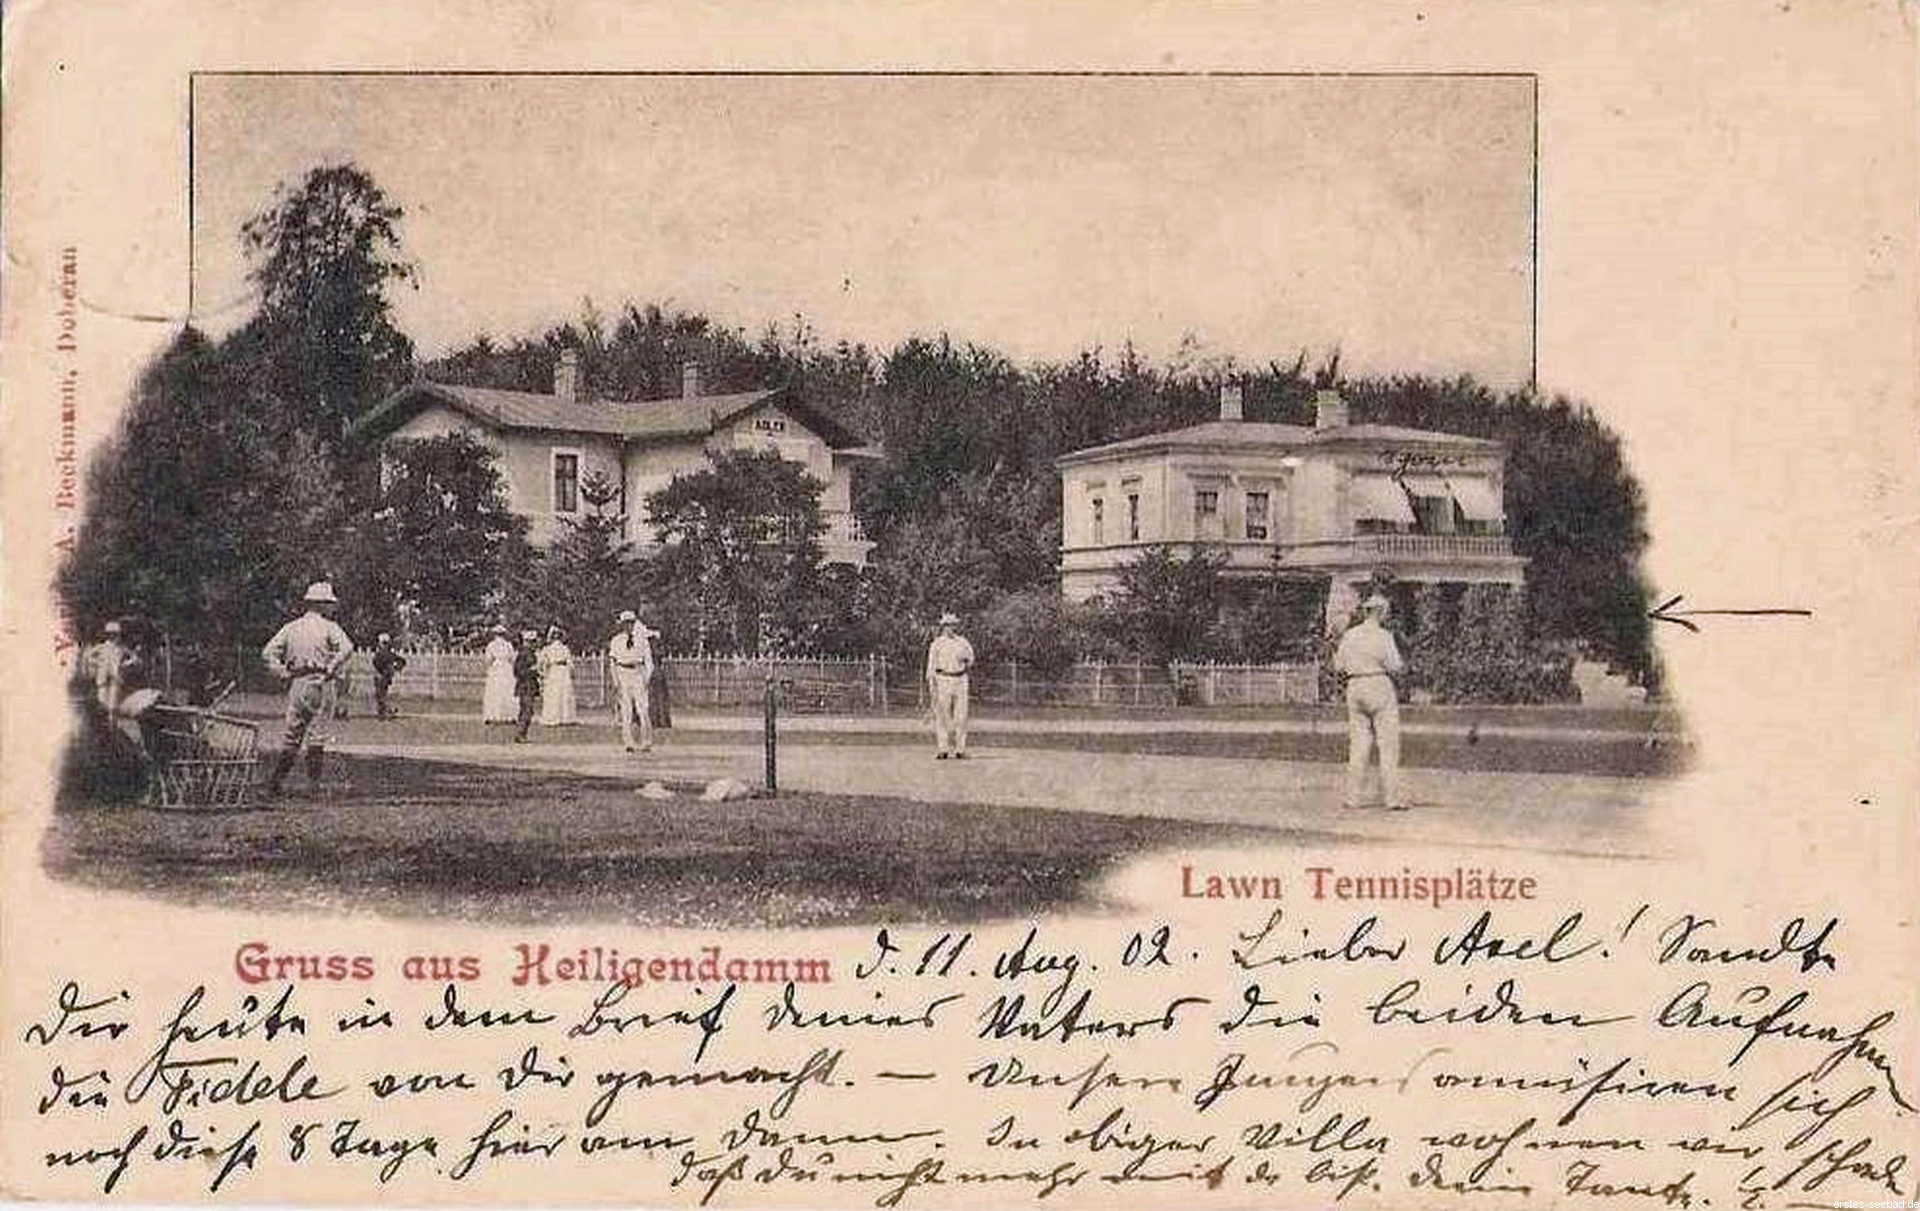 Verl. A. Beckmann, Doberan
ADLER
Lawn Tennisplätze
Gruss aus Heiligendamm d. 11. Aug. 02. Lieber Axel! Sandte
Dir heute in dem Brief deines Vaters die beiden Aufnahmen
die Fidele von Dir gemacht. — Unsere Jungens amüsiren sich
noch diese 8 Tage hier am Damm. In obiger Villa wohnen wir, schade
daß Du nicht mehr mit da bist. Deine Tante.
erstes-seebad.de